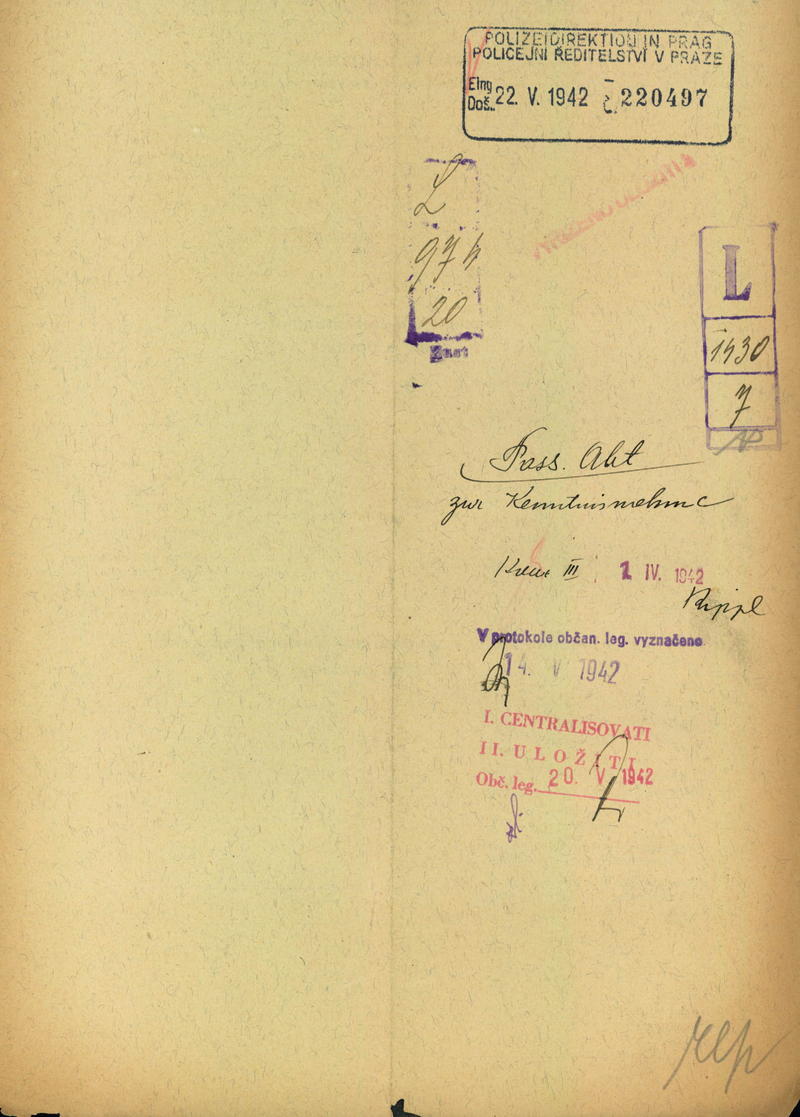 POLIZEIDIREKTION IN PRAG
POLICEJNÍ ŘEDITELSTVÍ V PRAZE
Elng
Doš.
22. V. 1942 č. 220497
L
974
20
L
1430
7
Pass. Akt
zur Kenntnisnahme
III 1 IV. 1942
Rippl
V protokole občan. leg. vyznačeno
14. V 1942
I. CENTRALISOVATI
II. ULOŽITI
Obč. leg. 20. V. 1942